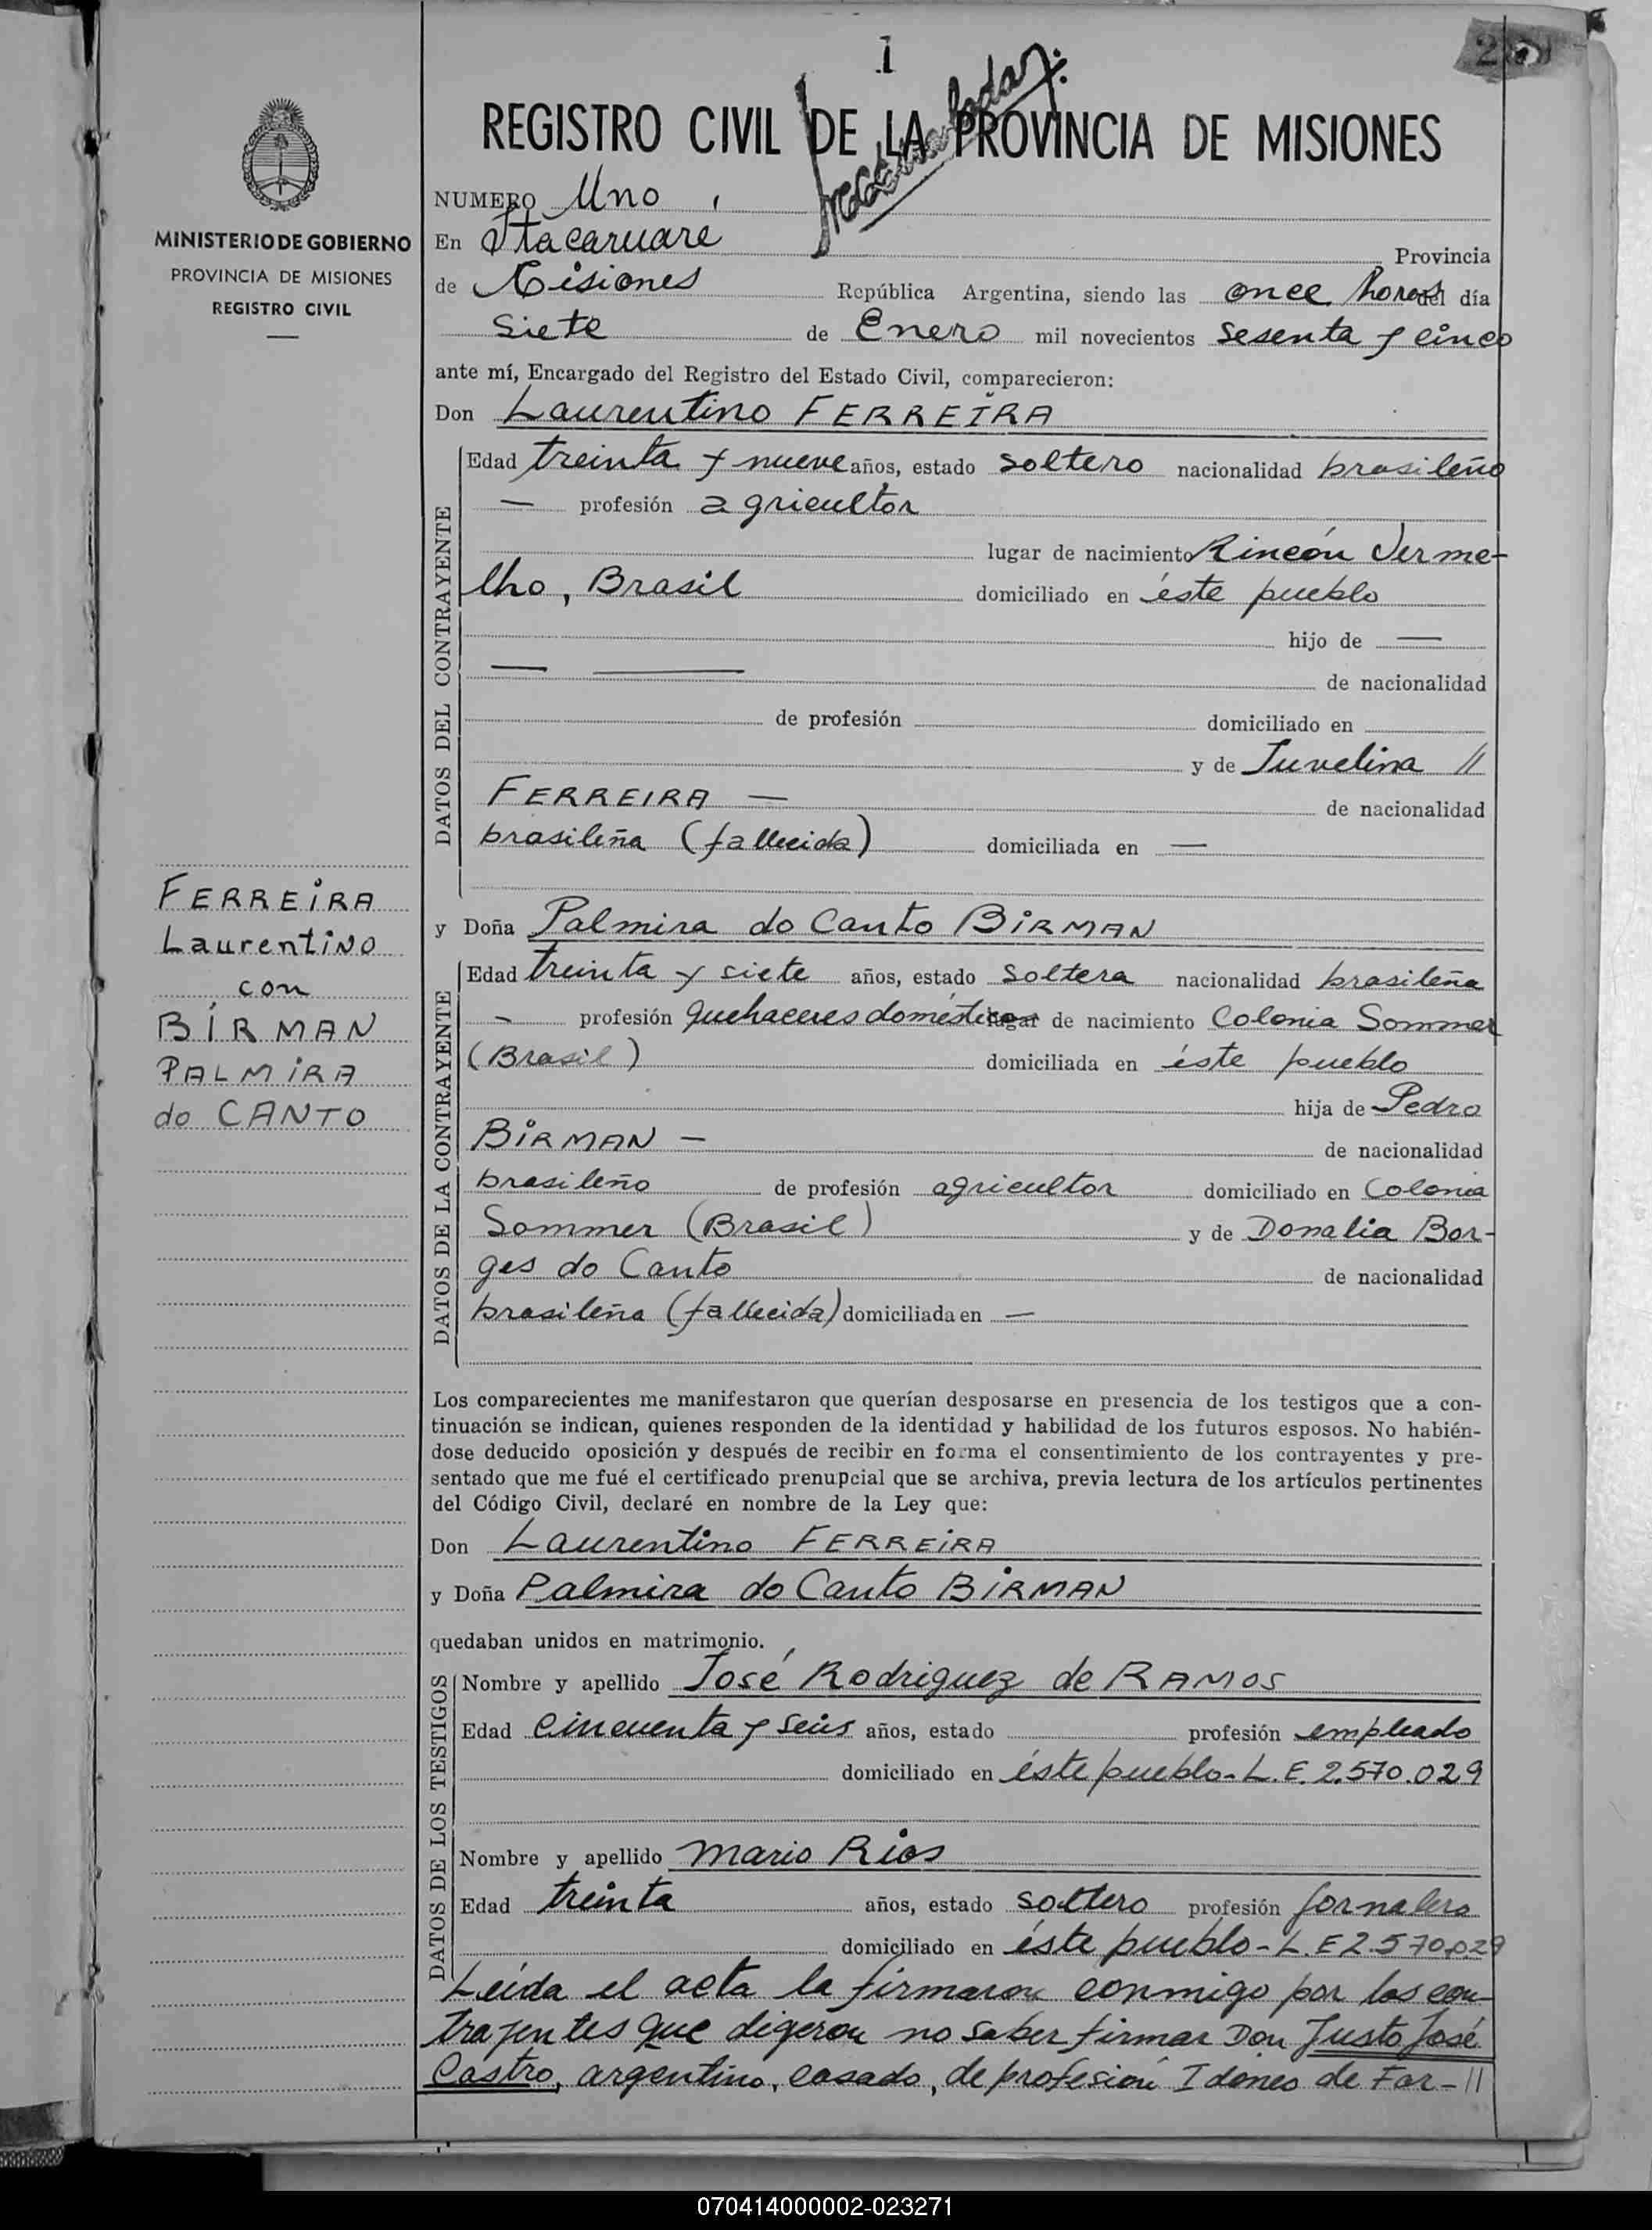 1
REGISTRO CIVIL DE LA PROVINCIA DE MISIONES
MINISTERIO DE GOBIERNO
PROVINCIA DE MISIONES
REGISTRO CIVIL
NUMERO Uno
En Itacaruare Provincia
de Misiones República Argentina, siendo las once horas del día
siete de Enero mil novecientos sesenta y cinco
ante mí, Encargado del Registro del Estado Civil, comparecieron:
Don Laurentino FERREIRA
DATOS DEL CONTRAYENTE
Edad treinta y nueve años, estado soltero nacionalidad brasileño
— profesión agricultor
lugar de nacimiento Rincón Verme-
lho, Brasil domiciliado en éste pueblo
hijo de —
— — de nacionalidad
de profesión domiciliado en
y de Juvelina //
FERREIRA — de nacionalidad
brasileña (fallecida) domiciliada en —
FERREIRA
Laurentino
con
BIRMAN
PALMIRA
do CANTO
y Doña Palmira do Canto BIRMAN
DATOS DE LA CONTRAYENTE
Edad treinta y siete años, estado soltera nacionalidad brasileña
- profesión quehaceres domésticos lugar de nacimiento Colonia Sommer
(Brasil) domiciliada en éste pueblo
hija de Pedro
BIRMAN — de nacionalidad
brasileño de profesión agricultor domiciliado en Colonia
Sommer (Brasil) y de Donalia Bor-
ges do Canto de nacionalidad
brasileña (fallecida) domiciliada en —
Los comparecientes me manifestaron que querían desposarse en presencia de los testigos que a con-
tinuación se indican, quienes responden de la identidad y habilidad de los futuros esposos. No habién-
dose deducido oposición y después de recibir en forma el consentimiento de los contrayentes y pre-
sentado que me fué el certificado prenupcial que se archiva, previa lectura de los artículos pertinentes
del Código Civil, declaré en nombre de la Ley que:
Don Laurentino FERREIRA
y Doña Palmira do Canto BIRMAN
quedaban unidos en matrimonio.
DATOS DE LOS TESTIGOS
Nombre y apellido José Rodriguez de RAMOS
Edad cincuenta y seis años, estado profesión empleado
domiciliado en éste pueblo - L.E. 2.570.029
Nombre y apellido Mario Rios
Edad treinta años, estado soltero profesión jornalero
domiciliado en éste pueblo - L.E 2.570.029
Leída el acta la firmaron conmigo por los con-
trayentes que digeron no saber firmar Don Justo José
Castro, argentino, casado, de profesión Idóneo de Far-//
070414000002-023271